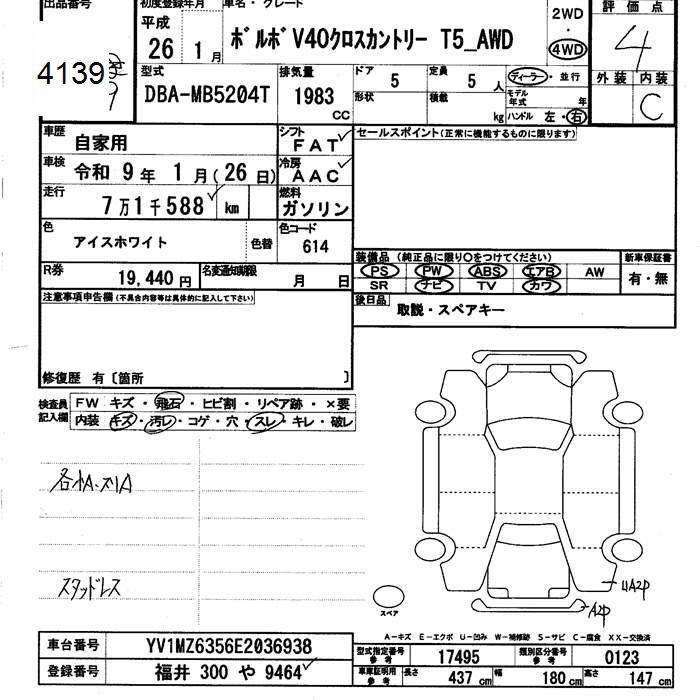 出品番号 初度登録年月 車名・グレード 評価点
平成 26 1月 ボルボ V40クロスカントリー T5_AWD 2WD 4WD 4
4139
外装 内装 C
型式 DBA-MB5204T 排気量 1983 CC ドア 5 定員 5 人 ディーラー・並行
形状 積載 kg モデル年式 年
ハンドル 左・右
車歴 自家用 シフト FAT セールスポイント(正常に機能するものに限ります)
車検 令和 9年 1月(26日) 冷房 AAC
走行 7万1千588 km 燃料 ガソリン
色 アイスホワイト 色替 色コード 614
装備品 (純正品に限り〇をつけてください) 新車保証書
PS PW ABS エアB AW 有・無
SR ナビ TV カワ
R券 19,440円 名変通知期限 月 日
後日品 取説・スペアキー
注意事項申告欄(不具合内容等は具体的に記入して下さい)
修復歴 有〔箇所 〕
検査員記入欄 FW キズ・飛石・ヒビ割・リペア跡・×要
内装・キズ・汚レ・コゲ・穴・スレ・キレ・破レ
スタッドレス
スペア
UA2P
A2P
A-キズ E-エクボ U-凹み W-補修跡 S-サビ C-腐食 XX-交換済
車台番号 YV1MZ6356E2036938
型式指定番号 参考 17495 類別区分番号 参考 0123
登録番号 福井 300 や 9464
車庫証明用 参考 長さ 437 cm 幅 180 cm 高さ 147 cm